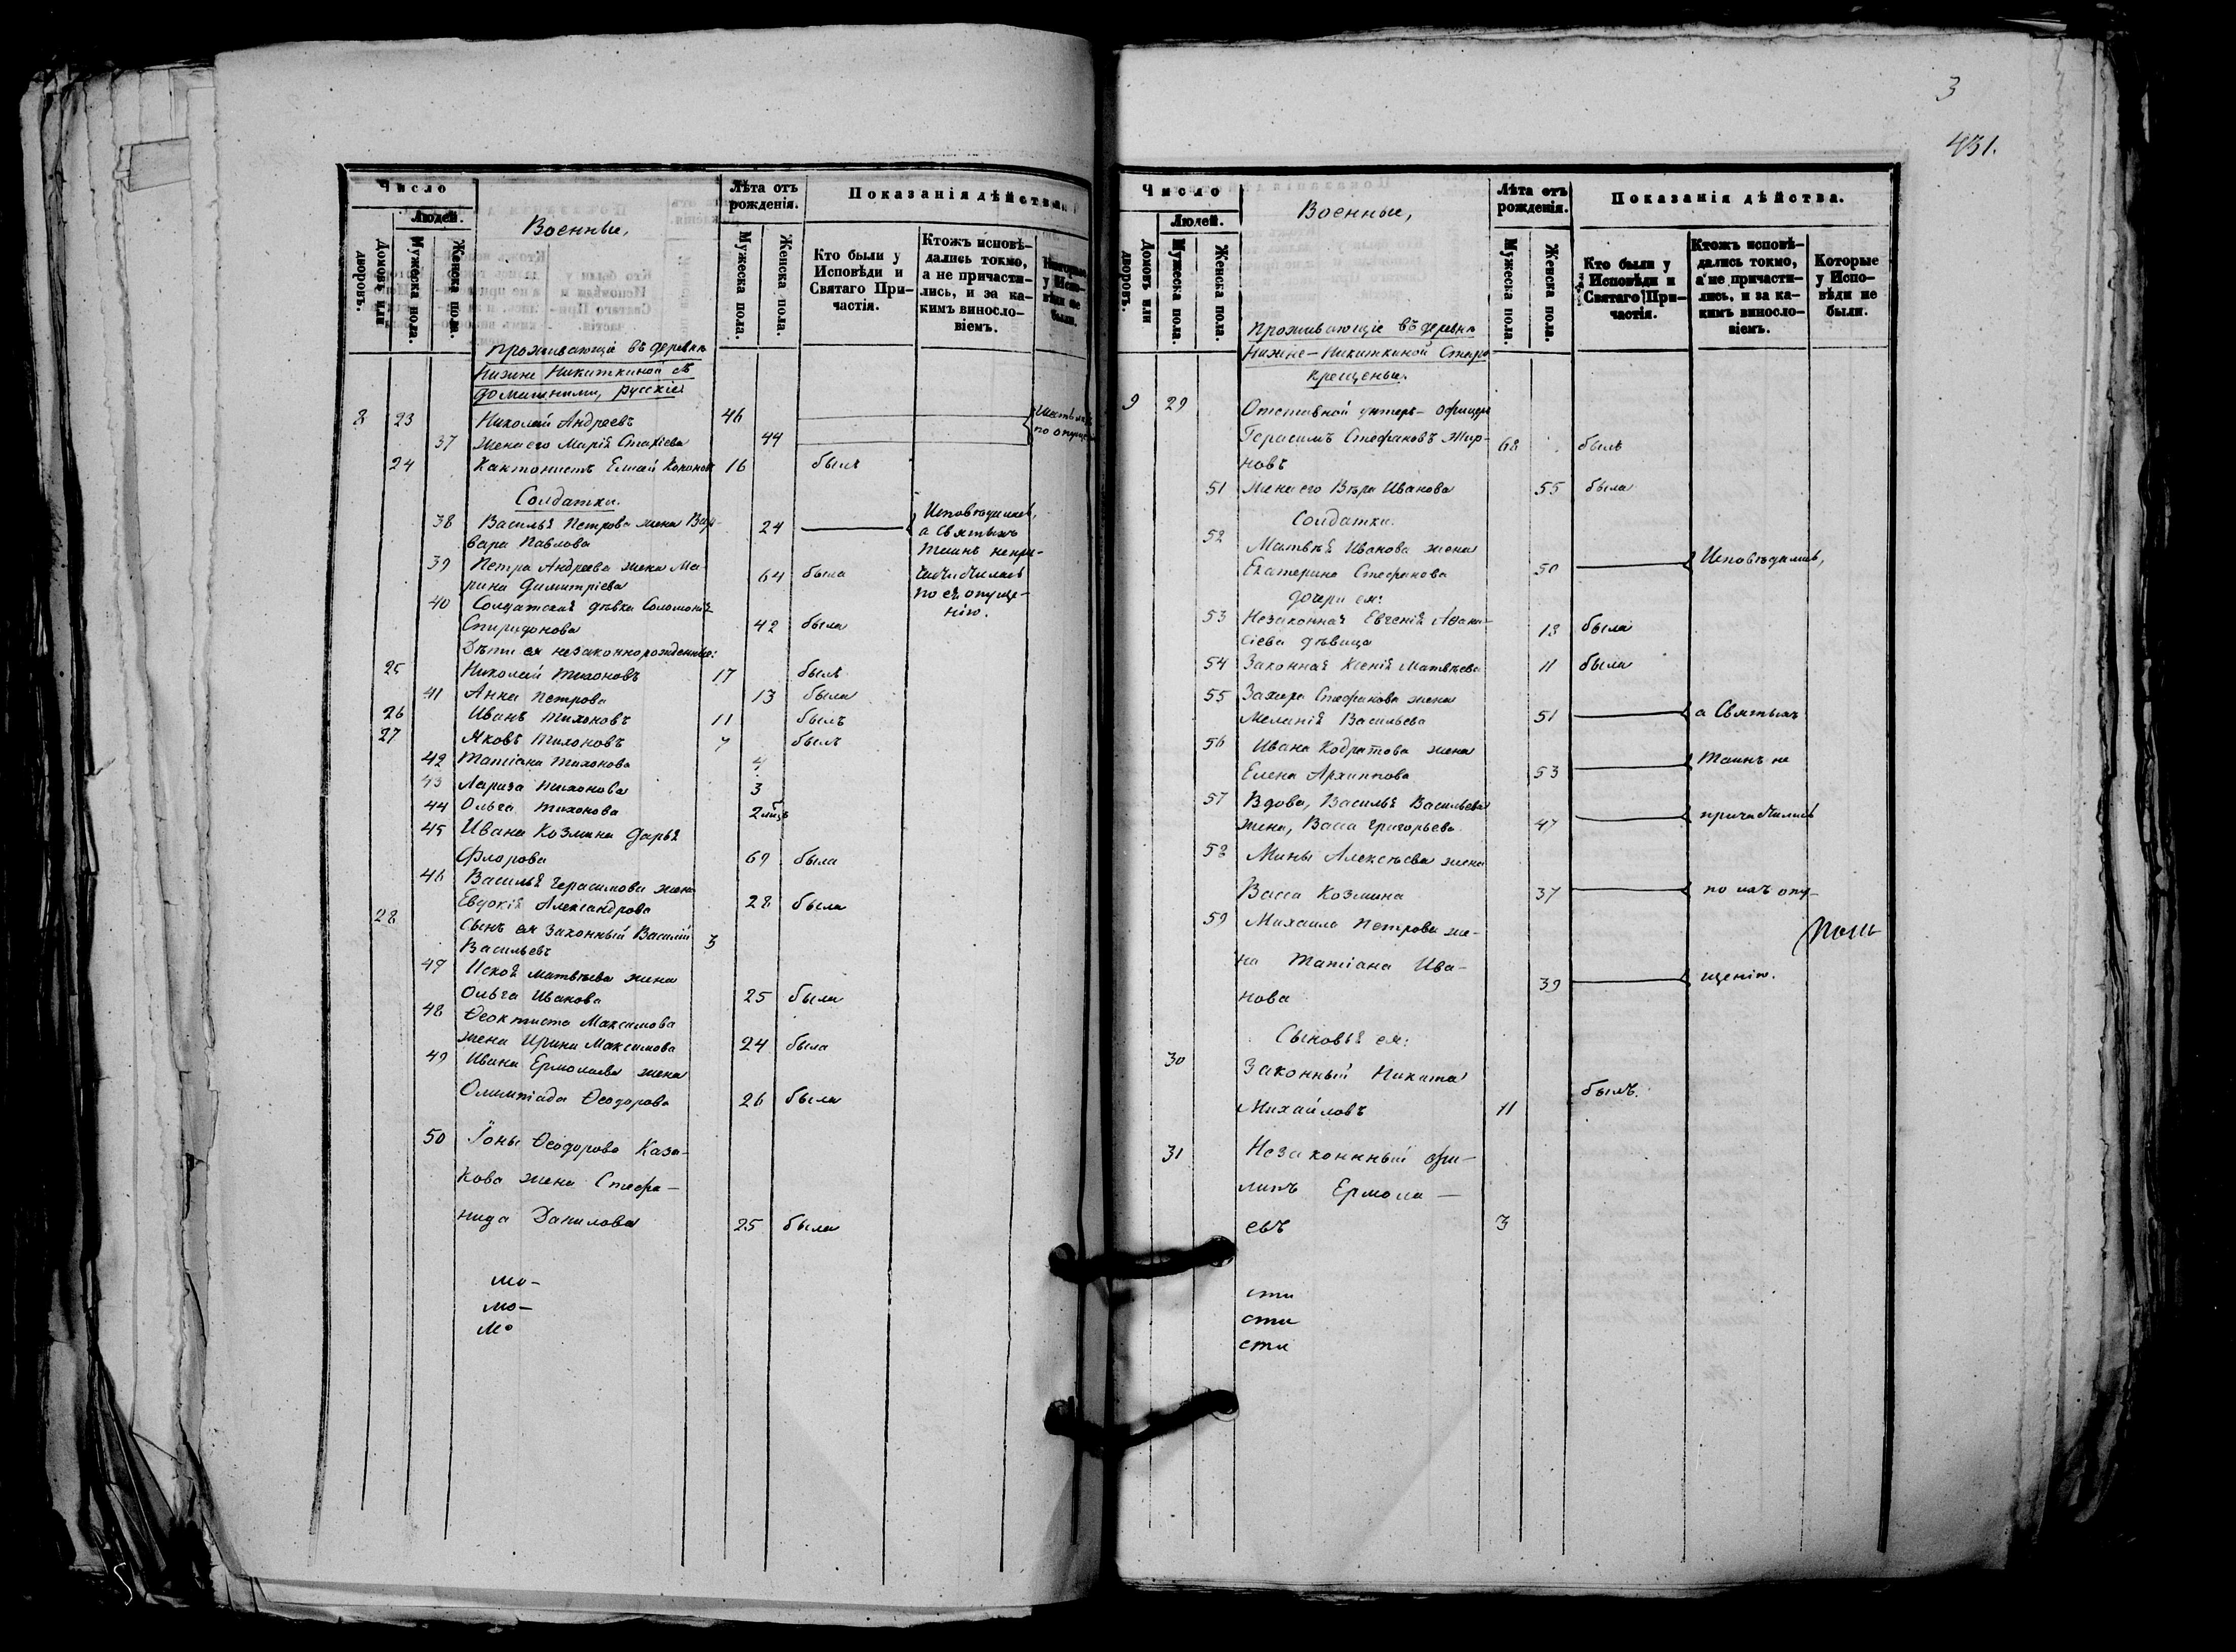 Число
Людей.
Домовъ или дворовъ.
Мужеска пола.
Женска пола.
Военные,
Лѣта отъ рожденія.
Мужеска пола.
Женска пола.
Показанія дѣйства
Кто были у Исповѣди и Святаго Причастія.
Ктожъ исповѣдались токмо, а не причастились, и за какимъ винословіемъ.
Которые у Исповѣди не были.
проживающіе въ деревнѣ
Нижне Никиткиной съ
домашними, русскіе
8 23 Николай Андреевъ 46
37 Жена его Марія 44 по
24 Кантонистъ 16 былъ
Солдатки.
38 Василья Петрова жена Вар- 24 Исповѣдалась,
вара Павлова а Святыхъ
Таинъ непри-
39 Петра Андреева жена Ма- 64 была частилась
рина Димитріева по ея опуще-
40 Солдатская дѣвка Соломонія нію.
Спиридонова 42 была
Дѣти ея незаконнорожденные:
25 Николай Тихоновъ 17 былъ
41 Анна Петрова 13 была
26 Иванъ Тихоновъ 11 былъ
27 Яковъ Тихоновъ 7 былъ
42 Татіана Тихонова 4
43 Лариза Тихонова 3
44 Ольга Тихонова 2
45 Ивана Козмина Дарья
Флорова 69 была
46 Василья Герасимова жена
Евдокія Александрова 28 была
28 Сынъ ея законный Василій 3
Васильевъ
47 Матвѣева жена
Ольга Иванова 25 была
48 Ѳеоктиста Максимова
жена Ирина Максимова 24 была
49 Ивана Ермолаева жена
Олимпіада Ѳеодорова 26 была
50 Іоны Ѳеодорова Каза-
кова жена Стефа-
нида Данилова 25 была
мо-
мо-
мо
3
431.
Число
Людей.
Домовъ или дворовъ.
Мужеска пола.
Женска пола.
Военные,
Лѣта отъ рожденія.
Мужеска пола.
Женска пола.
Показанія дѣйства.
Кто были у Исповѣди и Святаго Причастія.
Ктожъ исповѣдались токмо, а не причастились, и за какимъ винословіемъ.
Которые у Исповѣди не были.
проживающіе въ деревнѣ
Нижне-Никиткиной Старо-
крещены.
9 29 Отставной унтеръ-офицеръ
Герасимъ Стефановъ Жир- 68 былъ
новъ
51 Жена его Вѣра Иванова 55 была
Солдатки.
52 Матвѣя Иванова жена
Екатерина Стефанова 50 Исповѣдались,
дочери ея:
53 Незаконная Евгенія Аѳана-
сіева дѣвица 13 была
54 Законная Ксенія Матвѣева 11 была
55 Захара Стефанова жена
Меланія Васильева 51 а Святыхъ
56 Ивана Кодратова жена
Елена Архиппова 53 Таинъ не
57 Вдова, Василья Васильева
жена, Васса Григорьева 47 причастились
58 Мины Алексѣева жена
Васса Козмина 37 по ихъ опу-
59 Михаила Петрова же-
на Татіана Ива- 39 щенію.
нова
Сыновья ея:
30 Законный Никита
Михайловъ 11 былъ.
31 Незаконный Фи-
липъ Ермола-
евъ 3
сти
сти
сти